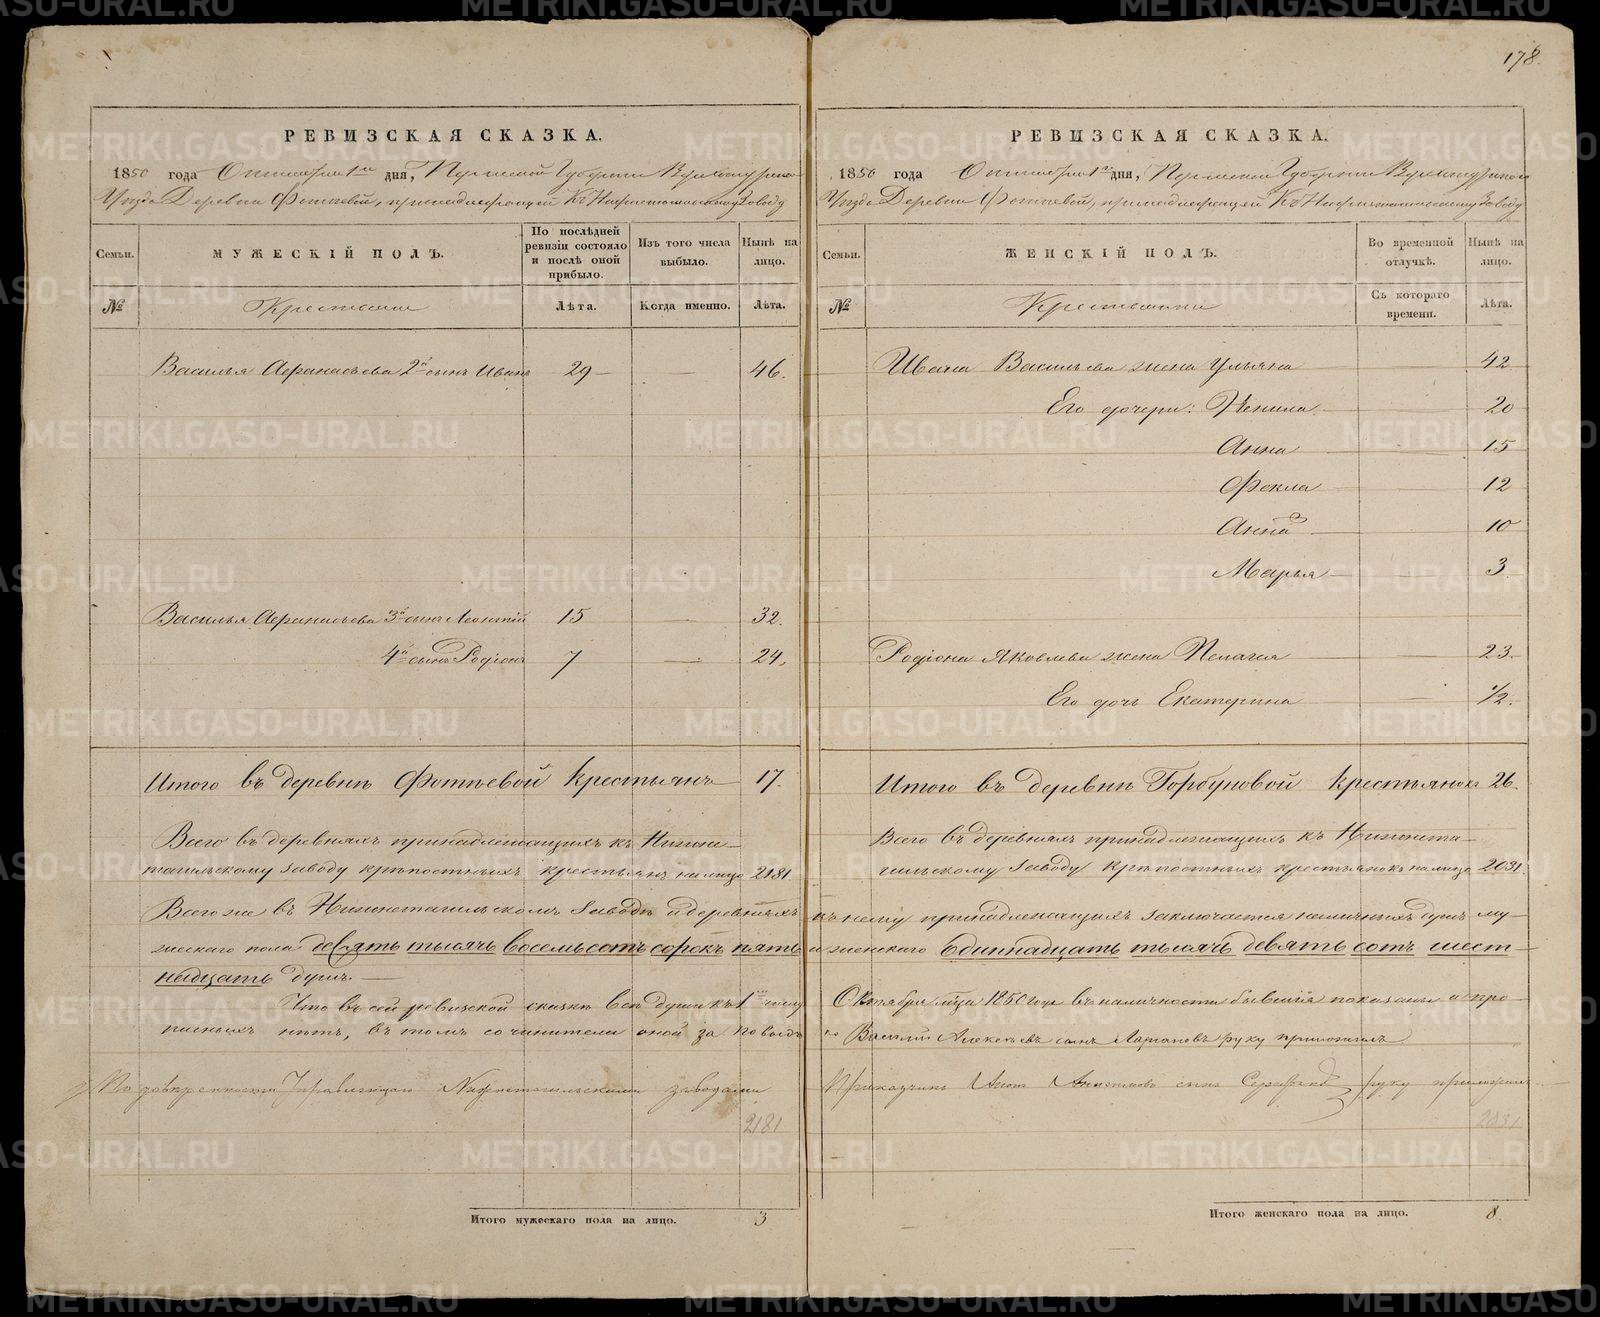 178.
РЕВИЗСКАЯ СКАЗКА.
1850 года Октября 1го дня, Пермской Губернии Верхотурскаго
Уезда Деревни Фотеевой, принадлежащей Къ Нижнетагильскому Заводу
Семьи. МУЖЕСКІЙ ПОЛЪ. По послѣдней ревизіи состояло и послѣ оной прибыло. Изъ того числа выбыло. Нынѣ на лицо.
№ Крестьяне Лѣта. Когда именно. Лѣта.
Василья Афанасьева 2й сынъ Иванъ 29 — — 46.
Василья Афанасьева 3й сынъ Леонтій 15 — 32.
4й сынъ Родіонъ 7 — 24.
Итого въ деревнѣ Фотѣевой крестьянъ 17.
Всего въ деревняхъ принадлежащихъ къ Нижне-
тагильскому заводу крѣпостныхъ крестьянъ на лицо 2181
Всего же въ Нижнетагильскомъ Заводѣ и деревняхъ
жескаго пола девять тысячь восемьсотъ сорокъ пять
надцать душъ. —
Что въ сей ревизской сказкѣ всѣ души къ 1му числу
писныхъ нѣтъ, въ томъ сочинители оной за
По довѣренности Управляющаго Нижнетагильскими заводами
2181
Итого мужескаго пола на лицо. 3
РЕВИЗСКАЯ СКАЗКА.
1850 года Октября 1го дня, Пермской Губернии Верхотурскаго
Уезда Деревни Фотеевой, принадлежащей Къ Нижнетагильскому Заводу
Семьи. ЖЕНСКІЙ ПОЛЪ. Во временной отлучкѣ. Нынѣ на лицо.
№ Крестьянки Съ котораго времени. Лѣта.
Ивана Васильева жена Ульяна — 42
Его дочери: Ненила — 20
Анна 15
Фекла — 12
Анна 10
Марья — 3
Родіона Яковлева жена Пелагея 23.
Его дочь Екатерина 1/2.
Итого въ деревнѣ Горбуновой крестьянокъ 26.
Всего въ деревняхъ принадлежащихъ къ Нижнета-
гильскому заводу крѣпостныхъ крестьянокъ на лицо 2031
къ нему принадлежащихъ заключается наличныхъ душъ му-
и женскаго Единнадцать тысячь девять сотъ шест-
Октября м-ца 1850 года въ наличности бывшія показаны и про-
Василій Алексѣевъ сынъ Ларіоновъ руку приложилъ
Прикащикъ сынъ руку приложилъ
2031
Итого женскаго пола на лицо. 8.
METRIKI.GASO-URAL.RU